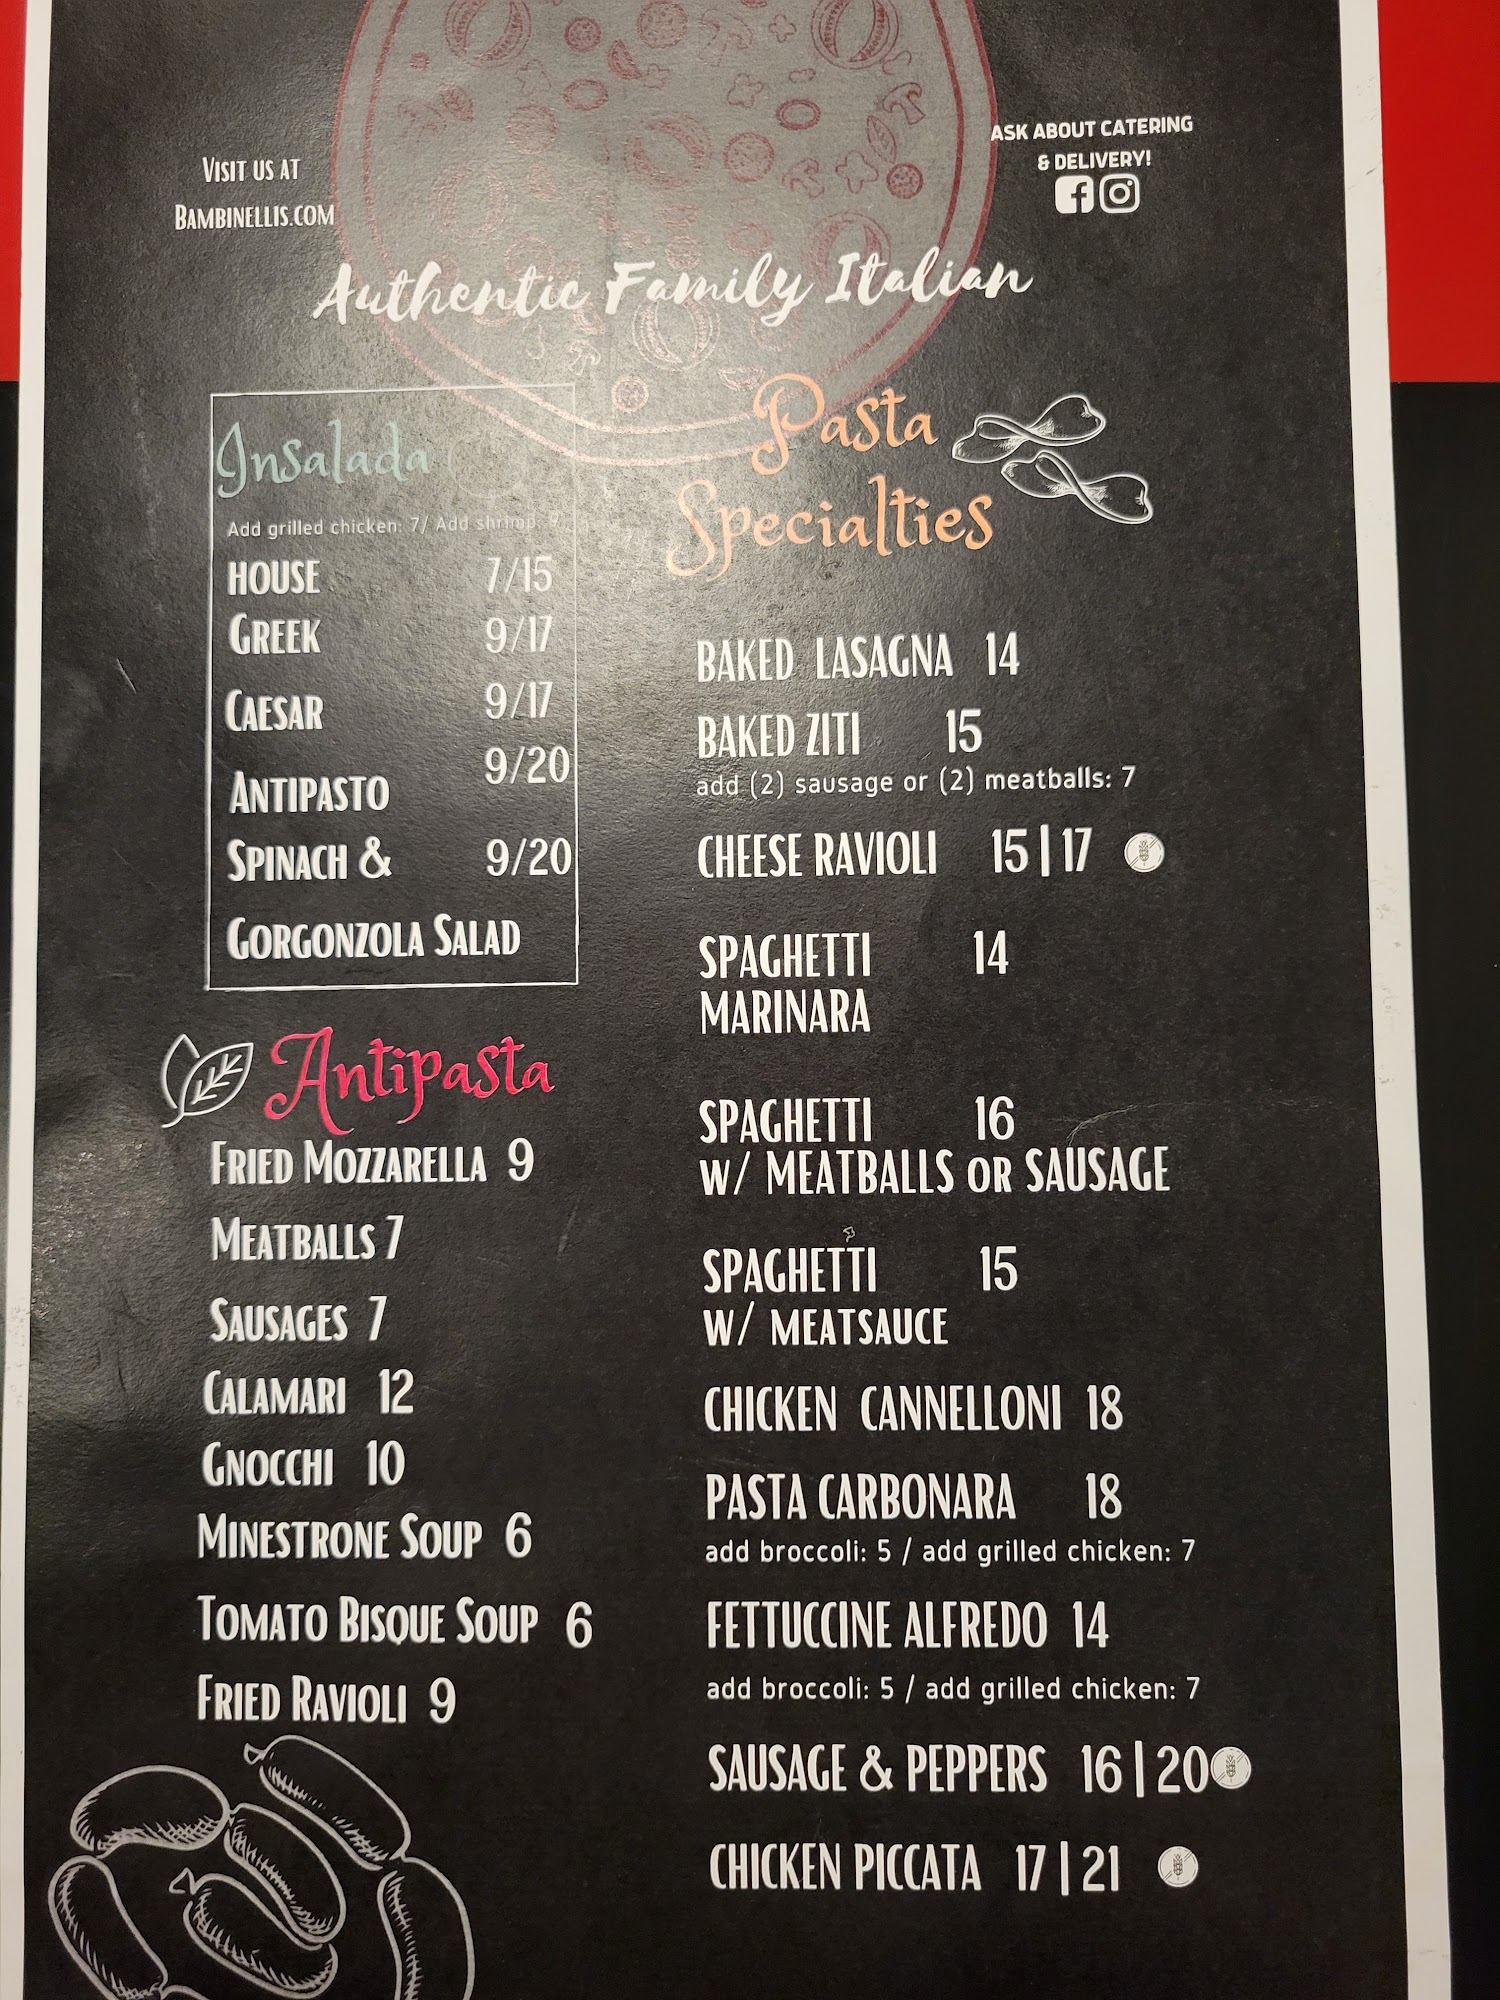 Visit us at
Bambinellis.com
ASK ABOUT CATERING
& DELIVERY!
Authentic Family Italian
Insalada
Add grilled chicken: 7/ Add shrimp: 9
HOUSE 7/15
GREEK 9/17
CAESAR 9/17
ANTIPASTO 9/20
SPINACH & 9/20
GORGONZOLA SALAD
Antipasta
FRIED MOZZARELLA 9
MEATBALLS 7
SAUSAGES 7
CALAMARI 12
GNOCCHI 10
MINESTRONE SOUP 6
TOMATO BISQUE SOUP 6
FRIED RAVIOLI 9
Pasta
Specialties
BAKED LASAGNA 14
BAKED ZITI 15
add (2) sausage or (2) meatballs: 7
CHEESE RAVIOLI 15 | 17
SPAGHETTI 14
MARINARA
SPAGHETTI 16
W/ MEATBALLS OR SAUSAGE
SPAGHETTI 15
W/ MEATSAUCE
CHICKEN CANNELLONI 18
PASTA CARBONARA 18
add broccoli: 5 / add grilled chicken: 7
FETTUCCINE ALFREDO 14
add broccoli: 5 / add grilled chicken: 7
SAUSAGE & PEPPERS 16 | 20
CHICKEN PICCATA 17 | 21